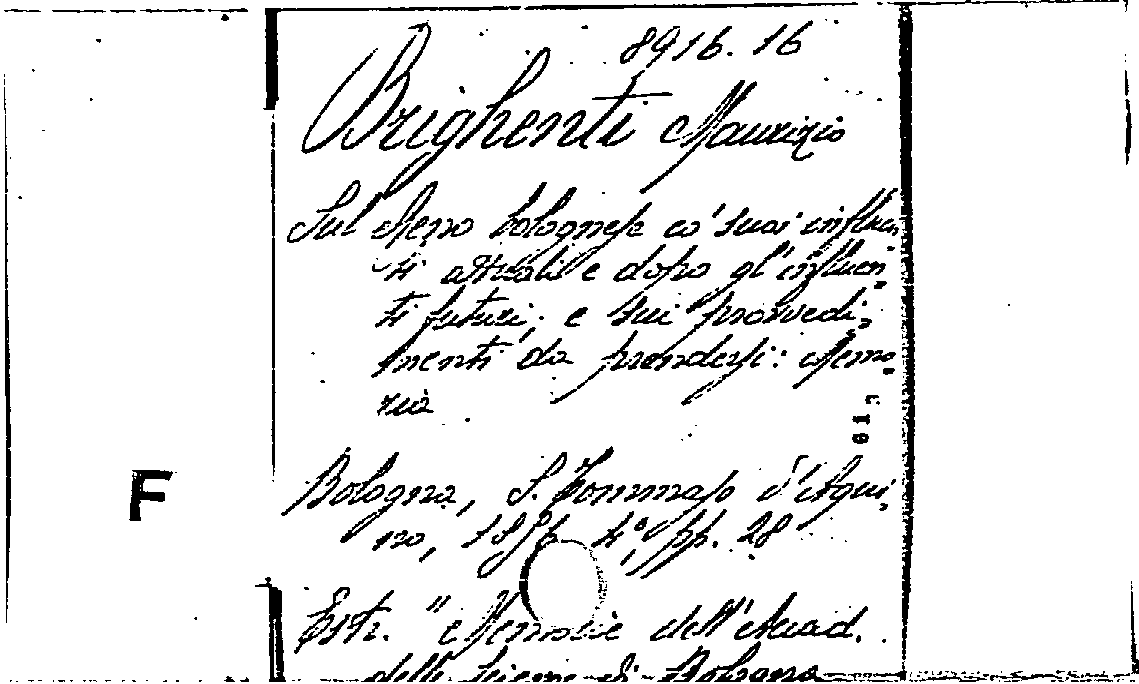 8916.16
Brighenti Maurizio
Sul Reno bolognese co' suoi influen
ti attuali e dopo gl'influen
ti futuri, e sui provvedi-
menti da prendersi: Memo-
ria
Bologna, S. Tommaso d'Aqui-
no, 4°, pp. 28
F
Estr. "Memorie dell'Accad.
delle scienze di Bologna